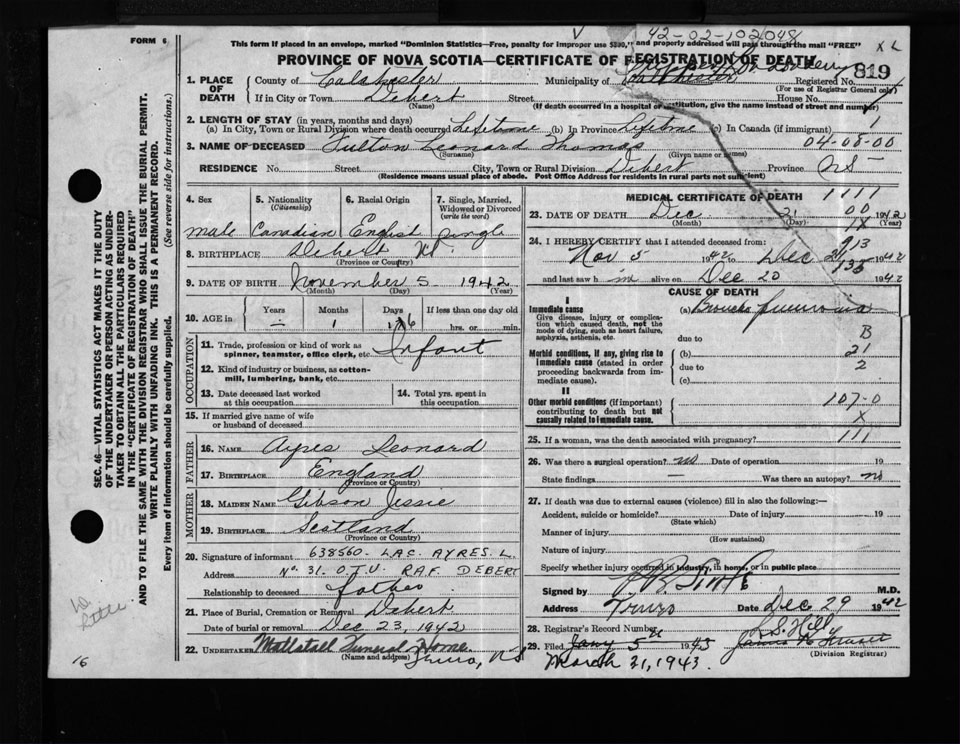 42-02-102048
FORM 6
This form if placed in an envelope, marked "Dominion Statistics—Free, penalty for improper use $300," and properly addressed will pass through the mail "FREE"
PROVINCE OF NOVA SCOTIA—CERTIFICATE OF REGISTRATION OF DEATH
X L
819
1. PLACE OF DEATH
County of Colchester Municipality of Colchester Registered No.
(For use of Registrar General only)
If in City or Town Debert Street House No.
(Name) (If death occurred in a hospital or institution, give the name instead of street and number)
2. LENGTH OF STAY (in years, months and days)
(a) In City, Town or Rural Division where death occurred Lifetime (b) In Province Lifetime (c) In Canada (if immigrant) 1
3. NAME OF DECEASED Fulton Leonard Thomas 04-05-00
(Surname) (Given name or names)
RESIDENCE No. Street City, Town or Rural Division Debert Province NS
(Residence means usual place of abode. Post Office Address for residents in rural parts not sufficient)
4. Sex
male
5. Nationality
(Citizenship)
Canadian
6. Racial Origin
English
7. Single, Married, Widowed or Divorced
(write the word)
Single
8. BIRTHPLACE Debert NS
(Province or Country)
9. DATE OF BIRTH November 5 1942
(Month) (Day)
10. AGE in
Years Months Days If less than one day old
— 1 16 hrs. or min.
OCCUPATION
11. Trade, profession or kind of work as spinner, teamster, office clerk, etc. Infant
12. Kind of industry or business, as cotton-mill, lumbering, bank, etc.
13. Date deceased last worked at this occupation
14. Total yrs. spent in this occupation
15. If married give name of wife or husband of deceased
FATHER
16. NAME Ayres Leonard
17. BIRTHPLACE England
(Province or Country)
MOTHER
18. MAIDEN NAME Gibson Jessie
19. BIRTHPLACE Scotland
(Province or Country)
20. Signature of informant 638560- LAC. AYRES. L.
Address No. 31. O.T.U. RAF. DEBERT
Relationship to deceased father
21. Place of Burial, Cremation or Removal Debert
Date of burial or removal Dec 23, 1942
22. UNDERTAKER Mattatall Funeral Home
(Name and address) Truro, NS
MEDICAL CERTIFICATE OF DEATH 1111
23. DATE OF DEATH Dec 21 1942
(Month) (Day) (Year)
00
1X
24. I HEREBY CERTIFY that I attended deceased from:
913
Nov 5 1942 to Dec 21 1942
135
and last saw him alive on Dec 20 1942
CAUSE OF DEATH
I
Immediate cause
Give disease, injury or complication which caused death, not the mode of dying, such as heart failure, asphyxia, asthenia, etc.
(a) Broncho pneumonia
due to B
Morbid conditions, if any, giving rise to immediate cause (stated in order proceeding backwards from immediate cause).
(b) 21
due to 2
(c)
II
Other morbid conditions (if important) contributing to death but not causally related to immediate cause.
107-0
X
25. If a woman, was the death associated with pregnancy? 111
26. Was there a surgical operation? no Date of operation 19
State findings Was there an autopsy? no
27. If death was due to external causes (violence) fill in also the following:—
Accident, suicide or homicide? Date of injury 19
(State which)
Manner of injury
(How sustained)
Nature of injury
Specify whether injury occurred in industry, in home, or in public place
Signed by M.D.
Address Truro Date Dec 29 1942
28. Registrar's Record Number
29. Filed Jany 5th 1943
March 31, 1943.
(Division Registrar)
SEC. 46—VITAL STATISTICS ACT MAKES IT THE DUTY
OF THE UNDERTAKER OR PERSON ACTING AS UNDER-
TAKER TO OBTAIN ALL THE PARTICULARS REQUIRED
IN THE "CERTIFICATE OF REGISTRATION OF DEATH"
AND TO FILE THE SAME WITH THE DIVISION REGISTRAR WHO SHALL ISSUE THE BURIAL PERMIT.
WRITE PLAINLY WITH UNFADING INK. THIS IS A PERMANENT RECORD.
Every item of information should be carefully supplied. (See reverse side for instructions.)
16